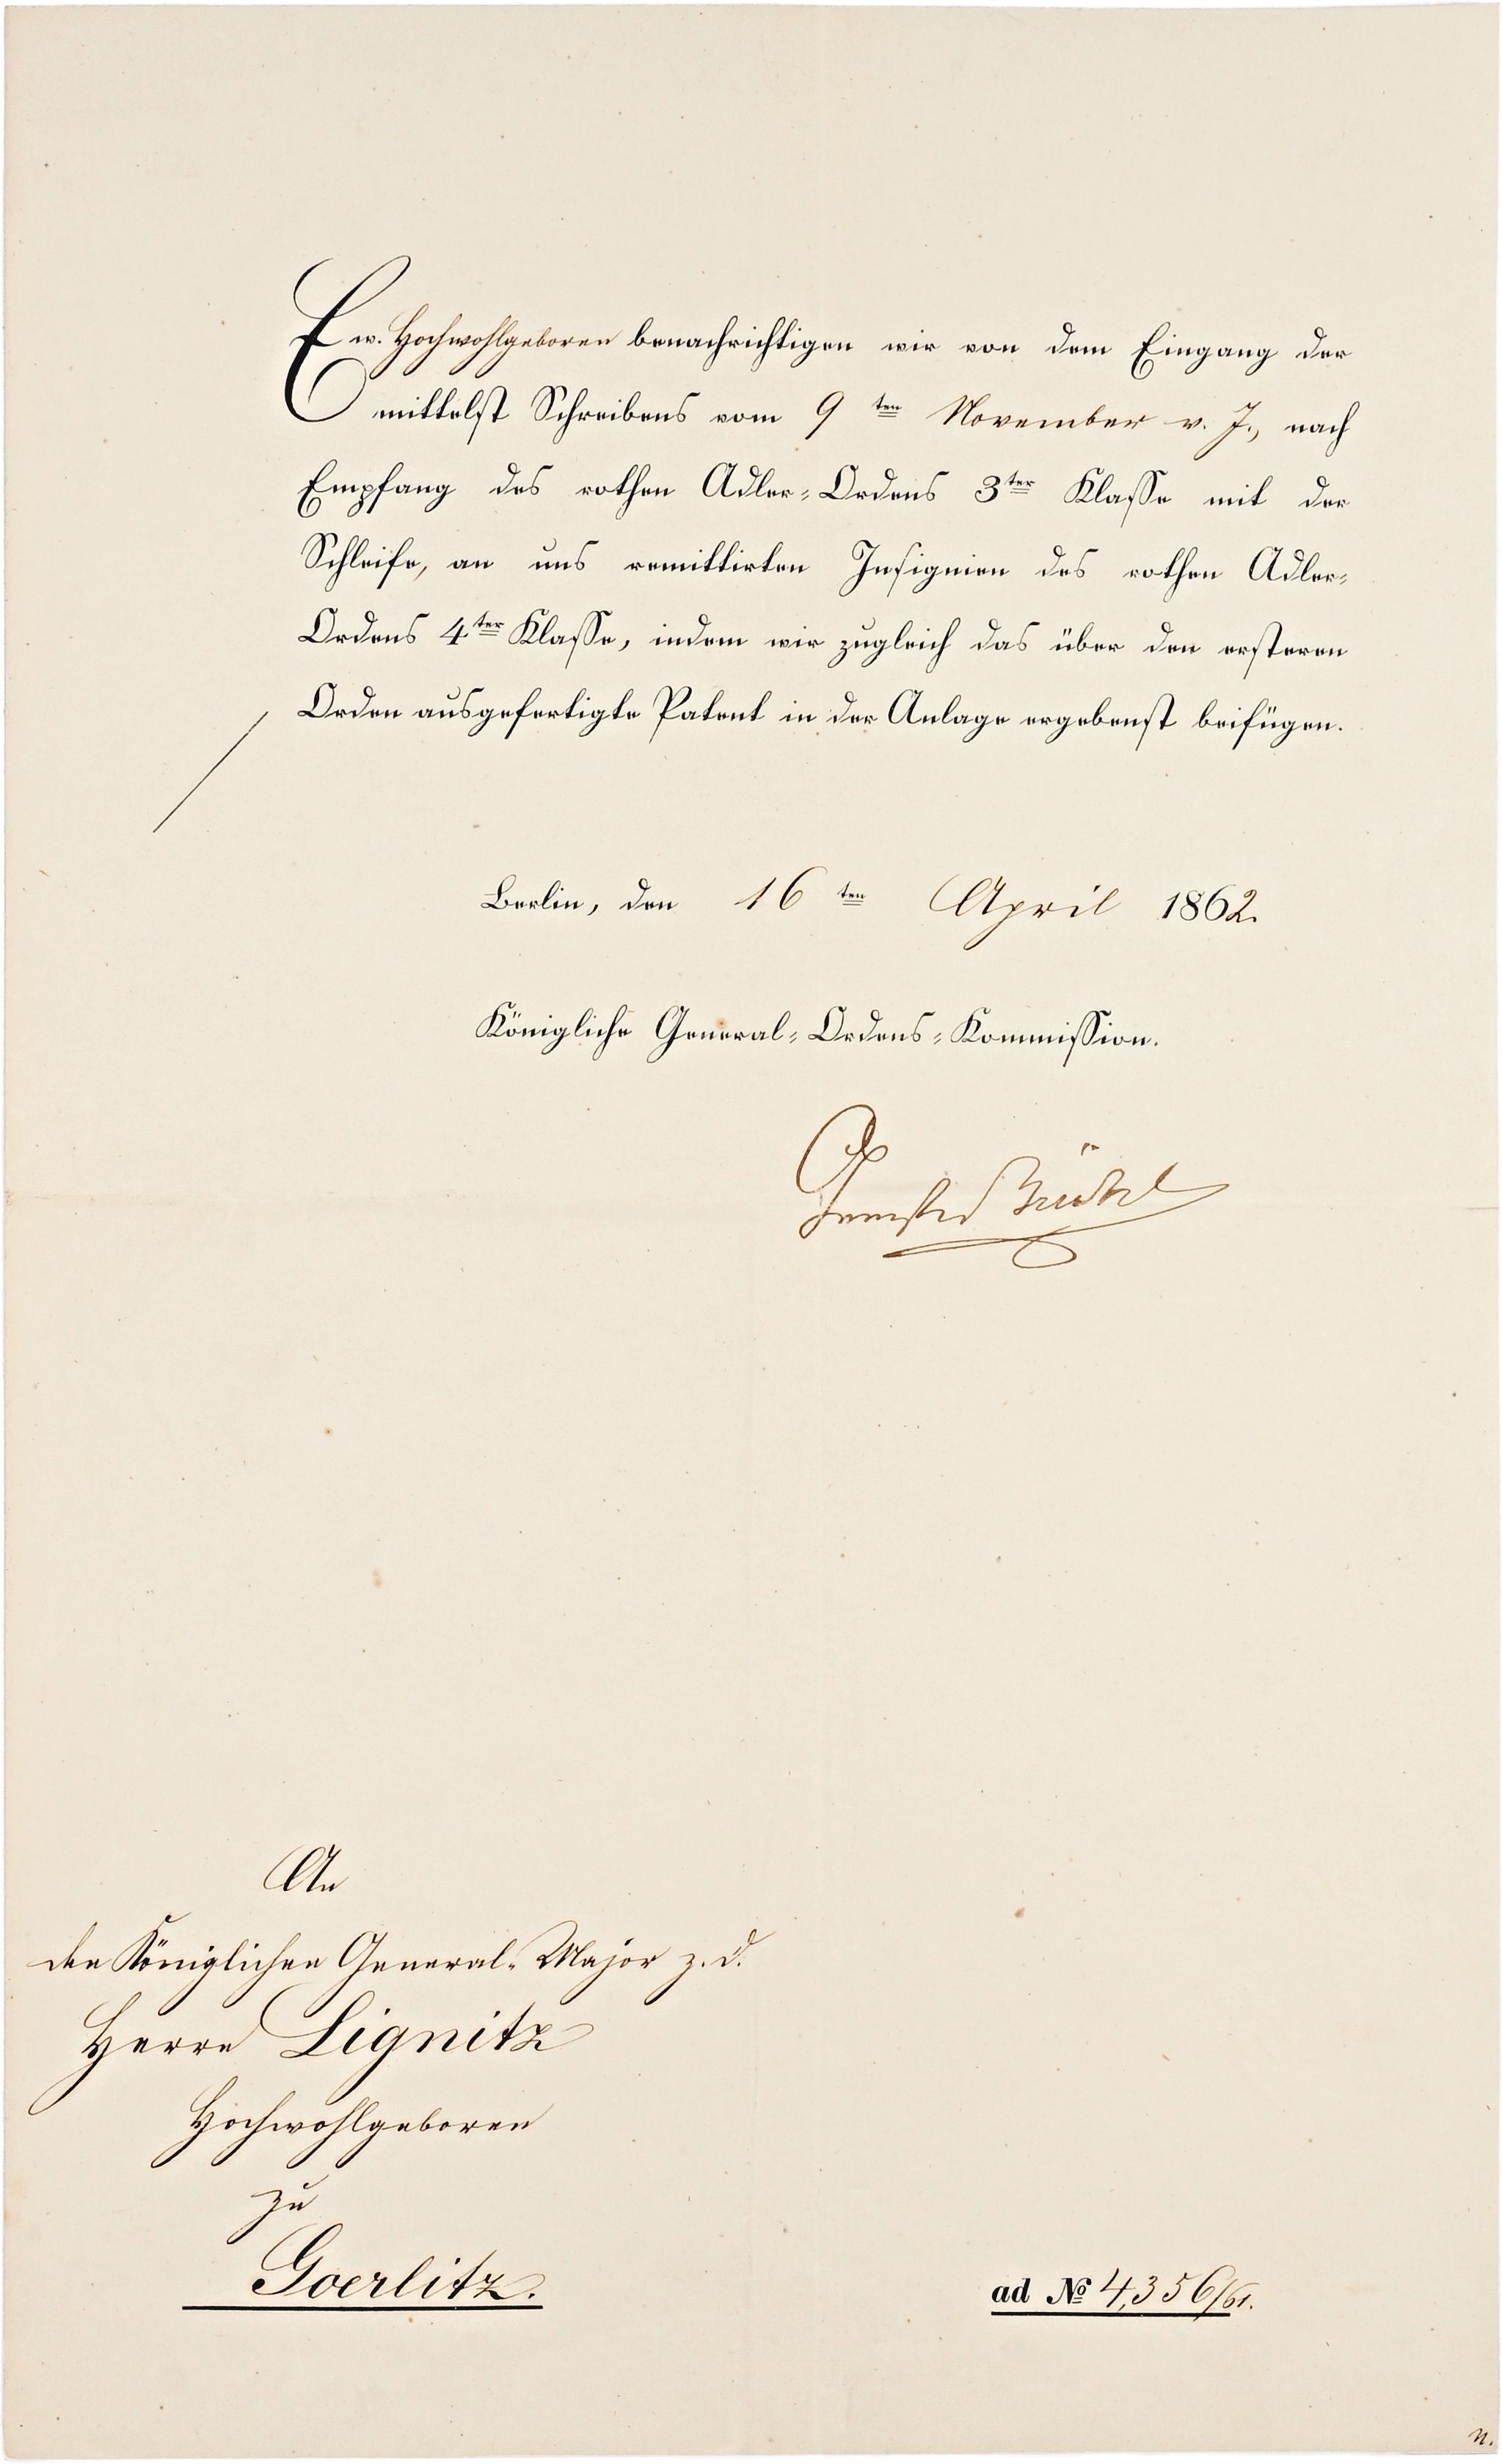 Ew. Hochwohlgeboren benachrichtigen wir von dem Eingang der
mittelst Schreibens vom 9ten November v. J., nach
Empfang des rothen Adler-Ordens 3ter Klasse mit der
Schleife, an uns remittirten Insignien des rothen Adler-
Ordens 4ter Klasse, indem wir zugleich das über den ersteren
Orden ausgefertigte Patent in der Anlage ergebenst beifügen.
Berlin, den 16ten April 1862.
Königliche General-Ordens-Kommission.
An
den Königlichen General-Major z. D.
Herrn Lignitz
Hochwohlgeboren
zu
Goerlitz.
ad No 4,356/61.
n.